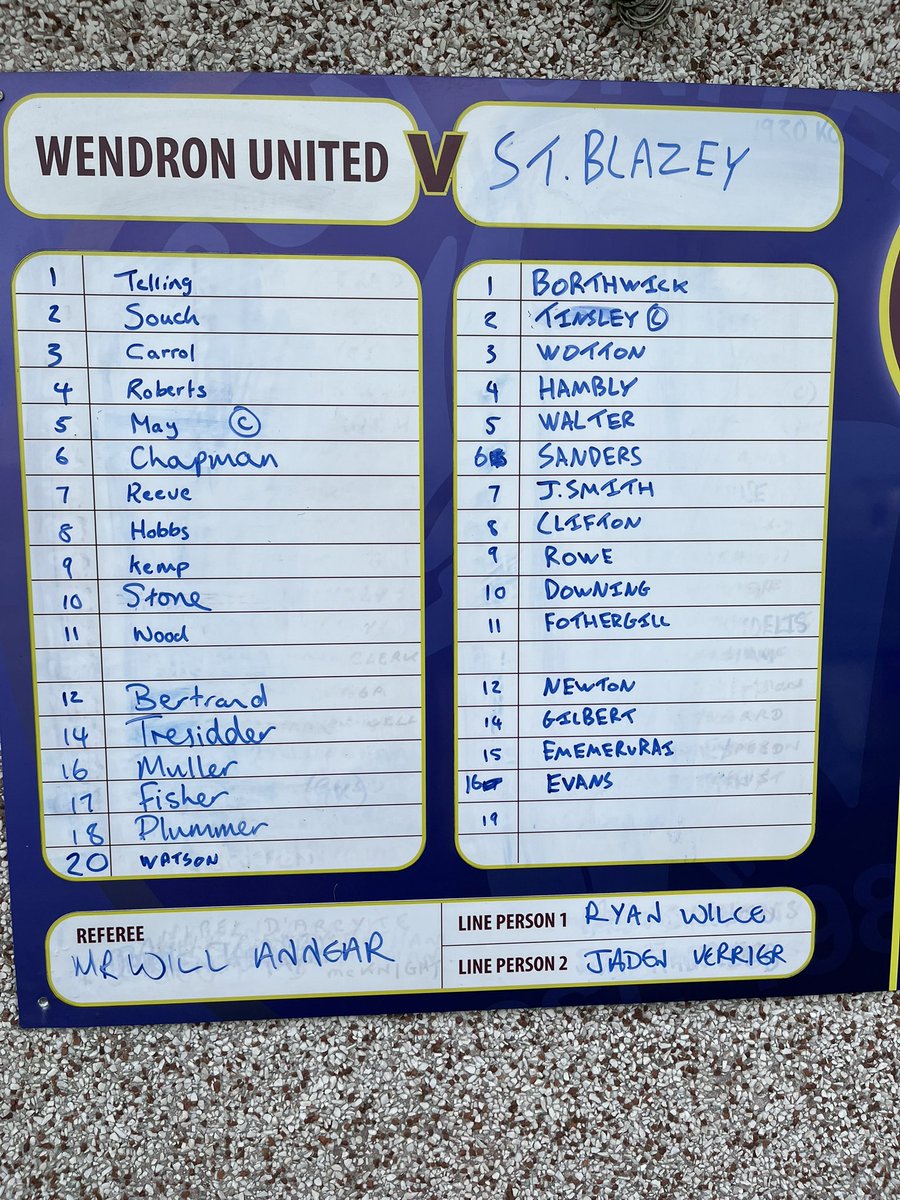 WENDRON UNITED V ST. BLAZEY
1930 KO
1 Telling
2 Souch
3 Carrol
4 Roberts
5 May C
6 Chapman
7 Reeve
8 Hobbs
9 Kemp
10 Stone
11 Wood
12 Bertrand
14 Tresidder
16 Muller
17 Fisher
18 Plummer
20 WATSON
1 BORTHWICK
2 TINSLEY C
3 WOTTON
4 HAMBLY
5 WALTER
6 SANDERS
7 J. SMITH
8 CLIFTON
9 ROWE
10 DOWNING
11 FOTHERGILL
12 NEWTON
14 GILBERT
15
16 EVANS
19
REFEREE
MR WILL ANNEAR
LINE PERSON 1 RYAN WILCE
LINE PERSON 2 JADEN VERRIER